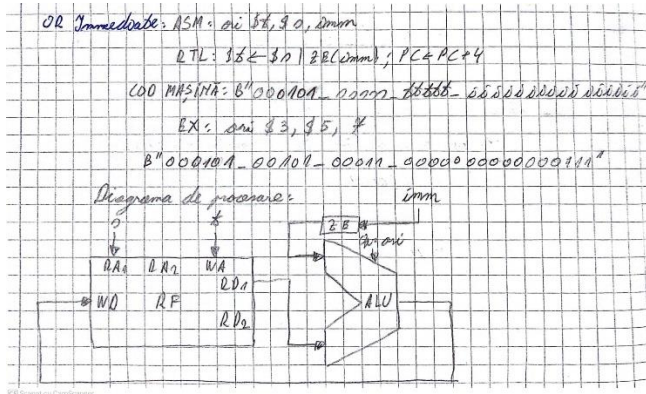 OR Immediate: ASM: ori $t, $s, imm
RTL: $t ← $s | ZE(imm); PC ← PC+4
COD MAȘINĂ: B"000101_sssss_ttttt_iiiiiiiiiiiiiiii"
EX: ori $3, $5, 7
B"000101_00101_00011_0000000000000111"
Diagrama de procesare:
imm
s
t
ZE
ori
RA1 RA2 WA
RD1
WD RF
ALU
RD2